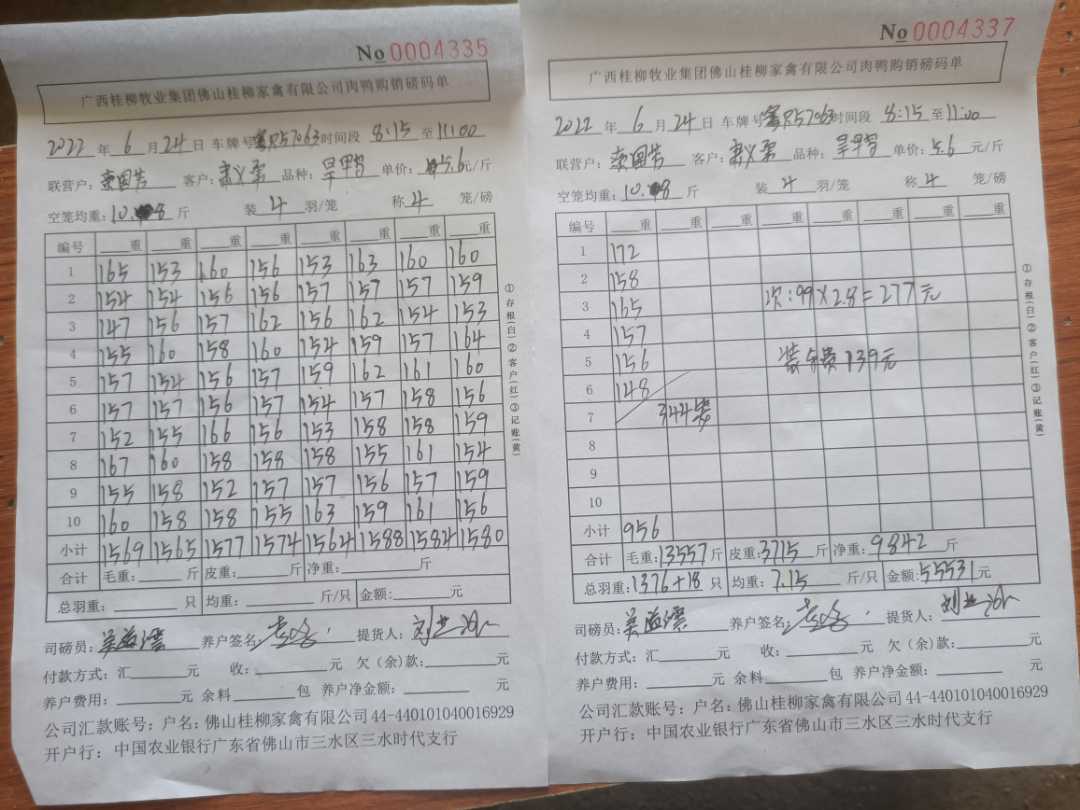 No 0004335
广西桂柳牧业集团佛山桂柳家禽有限公司肉鸭购销磅码单
2022年 6月24日 车牌号 57063 时间段 8:15 至 11:00
联营户: 客户: 品种: 单价: 5.6元/斤
空笼均重: 10.8 斤 装 4 羽/笼 称 4 笼/磅
编号 重 重 重 重 重 重 重 重
1 165 153 160 156 153 163 160 160
2 154 154 156 156 157 157 157 159
3 147 156 157 162 156 162 154 153
4 155 160 158 160 154 159 157 164
5 157 154 156 157 159 162 161 160
6 157 157 156 157 154 157 158 156
7 152 155 166 156 153 158 158 159
8 167 160 158 158 158 155 161 154
9 155 158 152 157 157 156 157 159
10 160 158 158 155 163 159 161 156
小计 1569 1565 1577 1574 1564 1588 1584 1580
合计 毛重: 斤 皮重: 斤 净重: 斤
总羽重: 只 均重: 斤/只 金额: 元
司磅员: 养户签名: 提货人:
付款方式: 汇 元 收: 元 欠(余)款: 元
养户费用: 元 余料 包 养户净金额: 元
公司汇款账号: 户名: 佛山桂柳家禽有限公司 44-440101040016929
开户行: 中国农业银行广东省佛山市三水区三水时代支行
①存根(白)②客户(红)③记账(黄)
No 0004337
广西桂柳牧业集团佛山桂柳家禽有限公司肉鸭购销磅码单
2022年 6月24日 车牌号 57063 时间段 8:15 至 11:00
联营户: 客户: 品种: 单价: 5.6元/斤
空笼均重: 10.8 斤 装 4 羽/笼 称 4 笼/磅
编号 重 重 重 重 重 重 重 重
1 172
2 158
3 165 次:99×2.8=277元
4 157
5 156 装车费139元
6 148
7 344
8
9
10
小计 956
合计 毛重: 13557斤 皮重: 3715 斤 净重: 9842 斤
总羽重: 1376+18 只 均重: 7.15 斤/只 金额: 55531元
司磅员: 养户签名: 提货人:
付款方式: 汇 元 收: 元 欠(余)款: 元
养户费用: 元 余料 包 养户净金额: 元
公司汇款账号: 户名: 佛山桂柳家禽有限公司 44-440101040016929
开户行: 中国农业银行广东省佛山市三水区三水时代支行
①存根(白)②客户(红)③记账(黄)